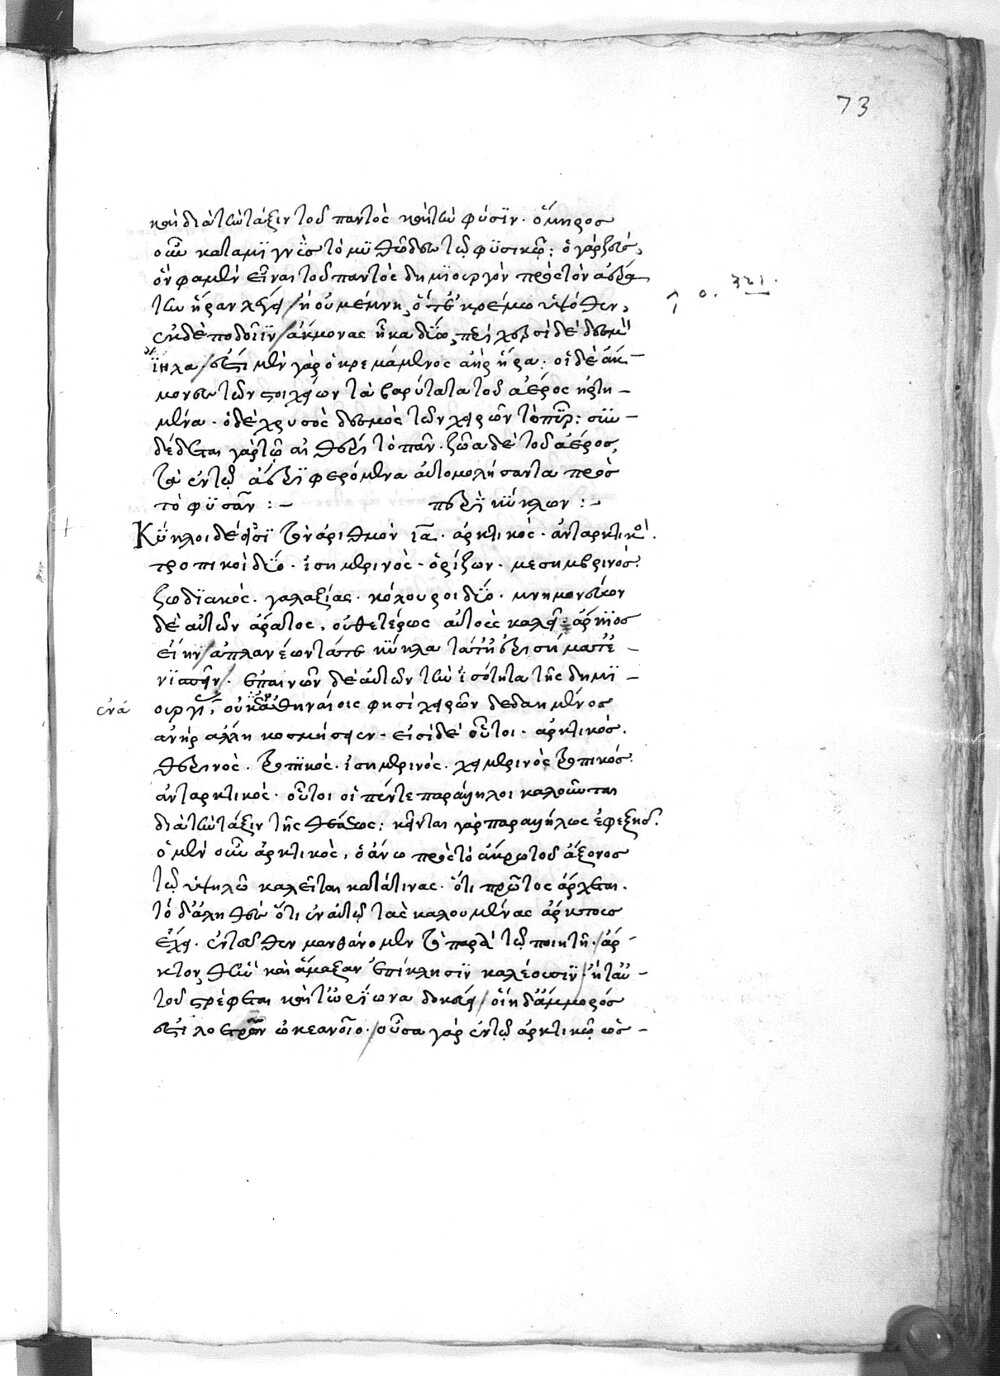 73
καὶ διὰ τὴν τάξιν τοῦ παντὸς καὶ τὴν φύσιν · ὅμηρος
οὖν καταμιγνὺς τὸ μυθῶδες τῷ φυσικῷ : ὁ γὰρ ζεύς,
ὅν φαμὲν εἶναι τοῦ παντὸς δημιουργὸν πρὸς τὸν ἀέρα
τὴν ἥραν λέγει / ἢ οὐ μέμνῃ ὅτε τ' ἐκρέμω ὑψόθεν,
ἐκ δὲ ποδοῖιν / ἄκμονας ἧκα δύω, περὶ χερσὶ δὲ δεσμὸν
ἴηλα / ἐστὶ μὲν γὰρ ὁ κρεμάμενος ἀὴρ ἥρα : οἱ δὲ ἄκ–
μονες τῶν στοιχείων τὰ βαρύτατα τοῦ ἀέρος ἠρτη–
μένα · ὁ δὲ χρυσὸς δεσμὸς τῶν χειρῶν τὸ πῦρ : συν–
δέδεται γὰρ τῷ αἰθέρι τὸ πᾶν · ζῶα δὲ τοῦ ἀέρος,
τὰ ἐν τῷ ἀέρι φερόμενα αὐτομολήσαντα πρὸς
τὸ φυσᾶν : – περὶ κύκλων : –
Κύκλοι δέ εἰσι τὸν ἀριθμὸν ια · ἀρκτικὸς · ἀνταρκτικός ·
τροπικοὶ δύο · ἰσημερινὸς · ὁρίζων · μεσημβρινός ·
ζωδιακὸς · γαλαξίας · κόλουροι δύο · μνημονεύων
δὲ αὐτῶν ἄρατος, οὐχ ἑτέρως αὐτοὺς καλεῖ
ἀπλανέων τά τε κύκλα τά τ' αἰθέρι σήματ' ἐ–
νιαυτοῦ / · ἐπαινῶν δὲ αὐτῶν τὴν ἰσότητα τῆς δημι–
ουργί οὐκ ἀθηναίης φησὶ χειρῶν δεδαημένος
ἀνὴρ ἄλλῃ κοσμήσειεν · εἰσὶ δὲ οὗτοι · ἀρκτικός ·
θερινὸς τροπικὸς · ἰσημερινὸς · χειμερινὸς τροπικός ·
ἀνταρκτικὸς · οὗτοι οἱ πέντε παράλληλοι καλοῦνται
διὰ τὴν τάξιν τῆς θέσεως : κεῖνται γὰρ παραλλήλως ἐφεξῆς ·
ὁ μὲν οὖν ἀρκτικὸς, ὁ ἄνω πρὸς τὸ ἄκρω τοῦ ἄξονος
τῷ ὑψηλῷ καλεῖται κατά τινας · ὅτι πρῶτος ἄρχεται ·
τὸ δ' ἀληθὲς ὅτι ἐν αὐτῷ τὰς καλουμένας ἄρκτους
ἔχει · ἐντεῦθεν μανθάνομεν τὸ παρὰ τῷ ποιητῇ · / ἄρ–
κτον θ' ἣν καὶ ἅμαξαν ἐπίκλησιν καλέουσιν / ἥ τ' αὐ–
τοῦ στρέφεται καὶ τ' ὠρίωνα δοκεύει / οἴη δ' ἄμμορός
ἐστι λοετρῶν ὠκεανοῖο · / οὖσα γὰρ ἐν τῷ ἀρκτικῷ ὡς –